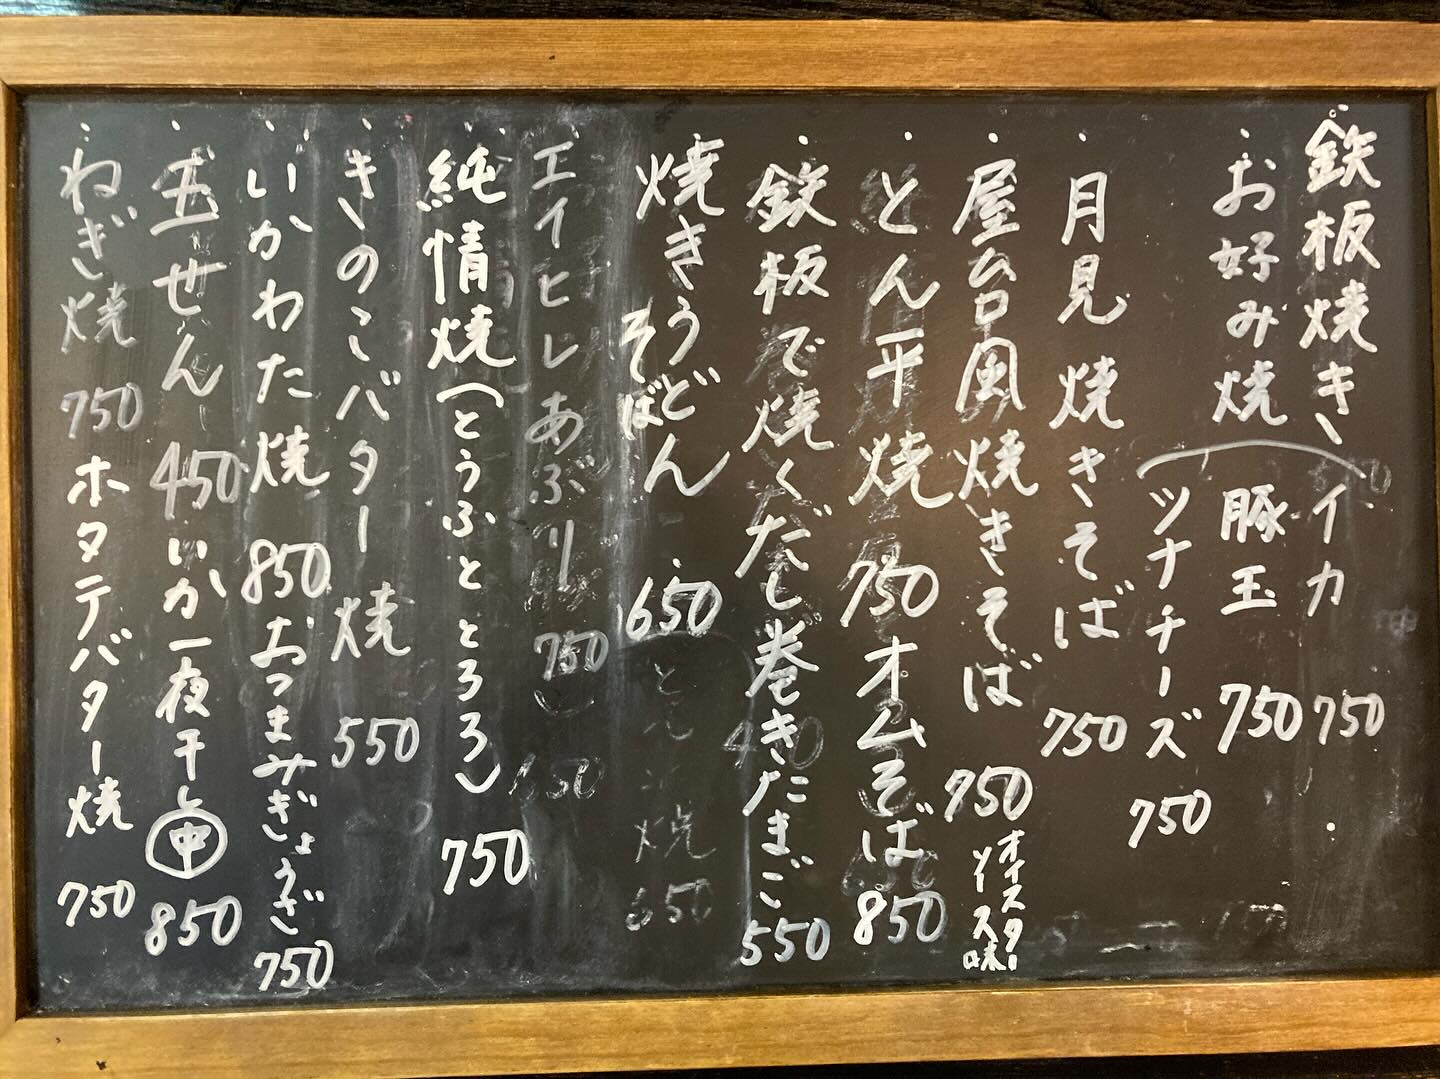 鉄板焼き
お好み焼
イカ 750
豚玉 750
ツナチーズ 750
月見焼きそば 750
屋台風焼きそば 750
オイスターソース味
とん平焼 750
オムそば 850
鉄板で焼くだし巻きたまご 550
焼きうどん
そば
650
エイヒレあぶり 750
純情焼(とうふととろろ) 750
きのこバター焼 550
いかわた焼 850
おつまみぎょうざ 750
玉せん 450
いか一夜干し 中 850
ねぎ焼 750
ホタテバター焼 750